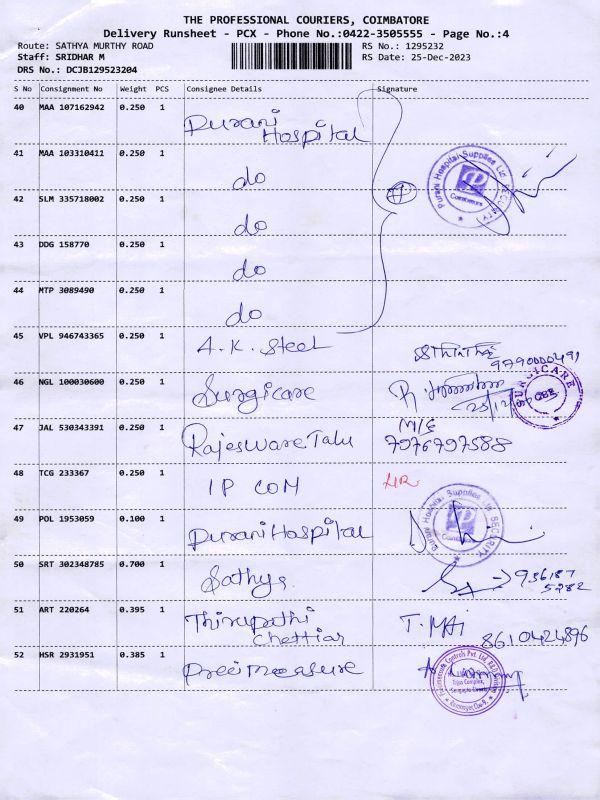 THE PROFESSIONAL COURIERS, COIMBATORE
Delivery Runsheet - PCX - Phone No.:0422-3505555 - Page No.:4
Route: SATHYA MURTHY ROAD RS No.: 1295232
Staff: SRIDHAR M RS Date: 25-Dec-2023
DRS No.: DCJB129523204
S No Consignment No Weight PCS Consignee Details Signature
40 MAA 107162942 0.250 1 Purani Hospital
41 MAA 103310411 0.250 1 do
Purani Hospital Supplies Ltd. SECURITY
Coimbatore
42 SLM 335718002 0.250 1 do
43 DDG 158770 0.250 1 do
44 MTP 3089490 0.250 1 do
45 VPL 946743365 0.250 1 A.K. Steel 9790000491
46 NGL 100030600 0.250 1 Surgicare
SURGICARE
CBE
47 JAL 530343391 0.250 1 Rajeswaree Talu M/E
7976797588
48 TCG 233367 0.250 1 IP COM
49 POL 1953059 0.100 1 Purani Hospital
Purani Hospital Supplies Ltd. SECURITY
Coimbatore
50 SRT 302348785 0.700 1 Sathya 936187
5282
51 ART 220264 0.395 1 Thirupathi Chettiar T. MAi
8610424896
52 HSR 2931951 0.385 1 Preemeasure
Controls Pvt. Ltd.
Tejas Complex,